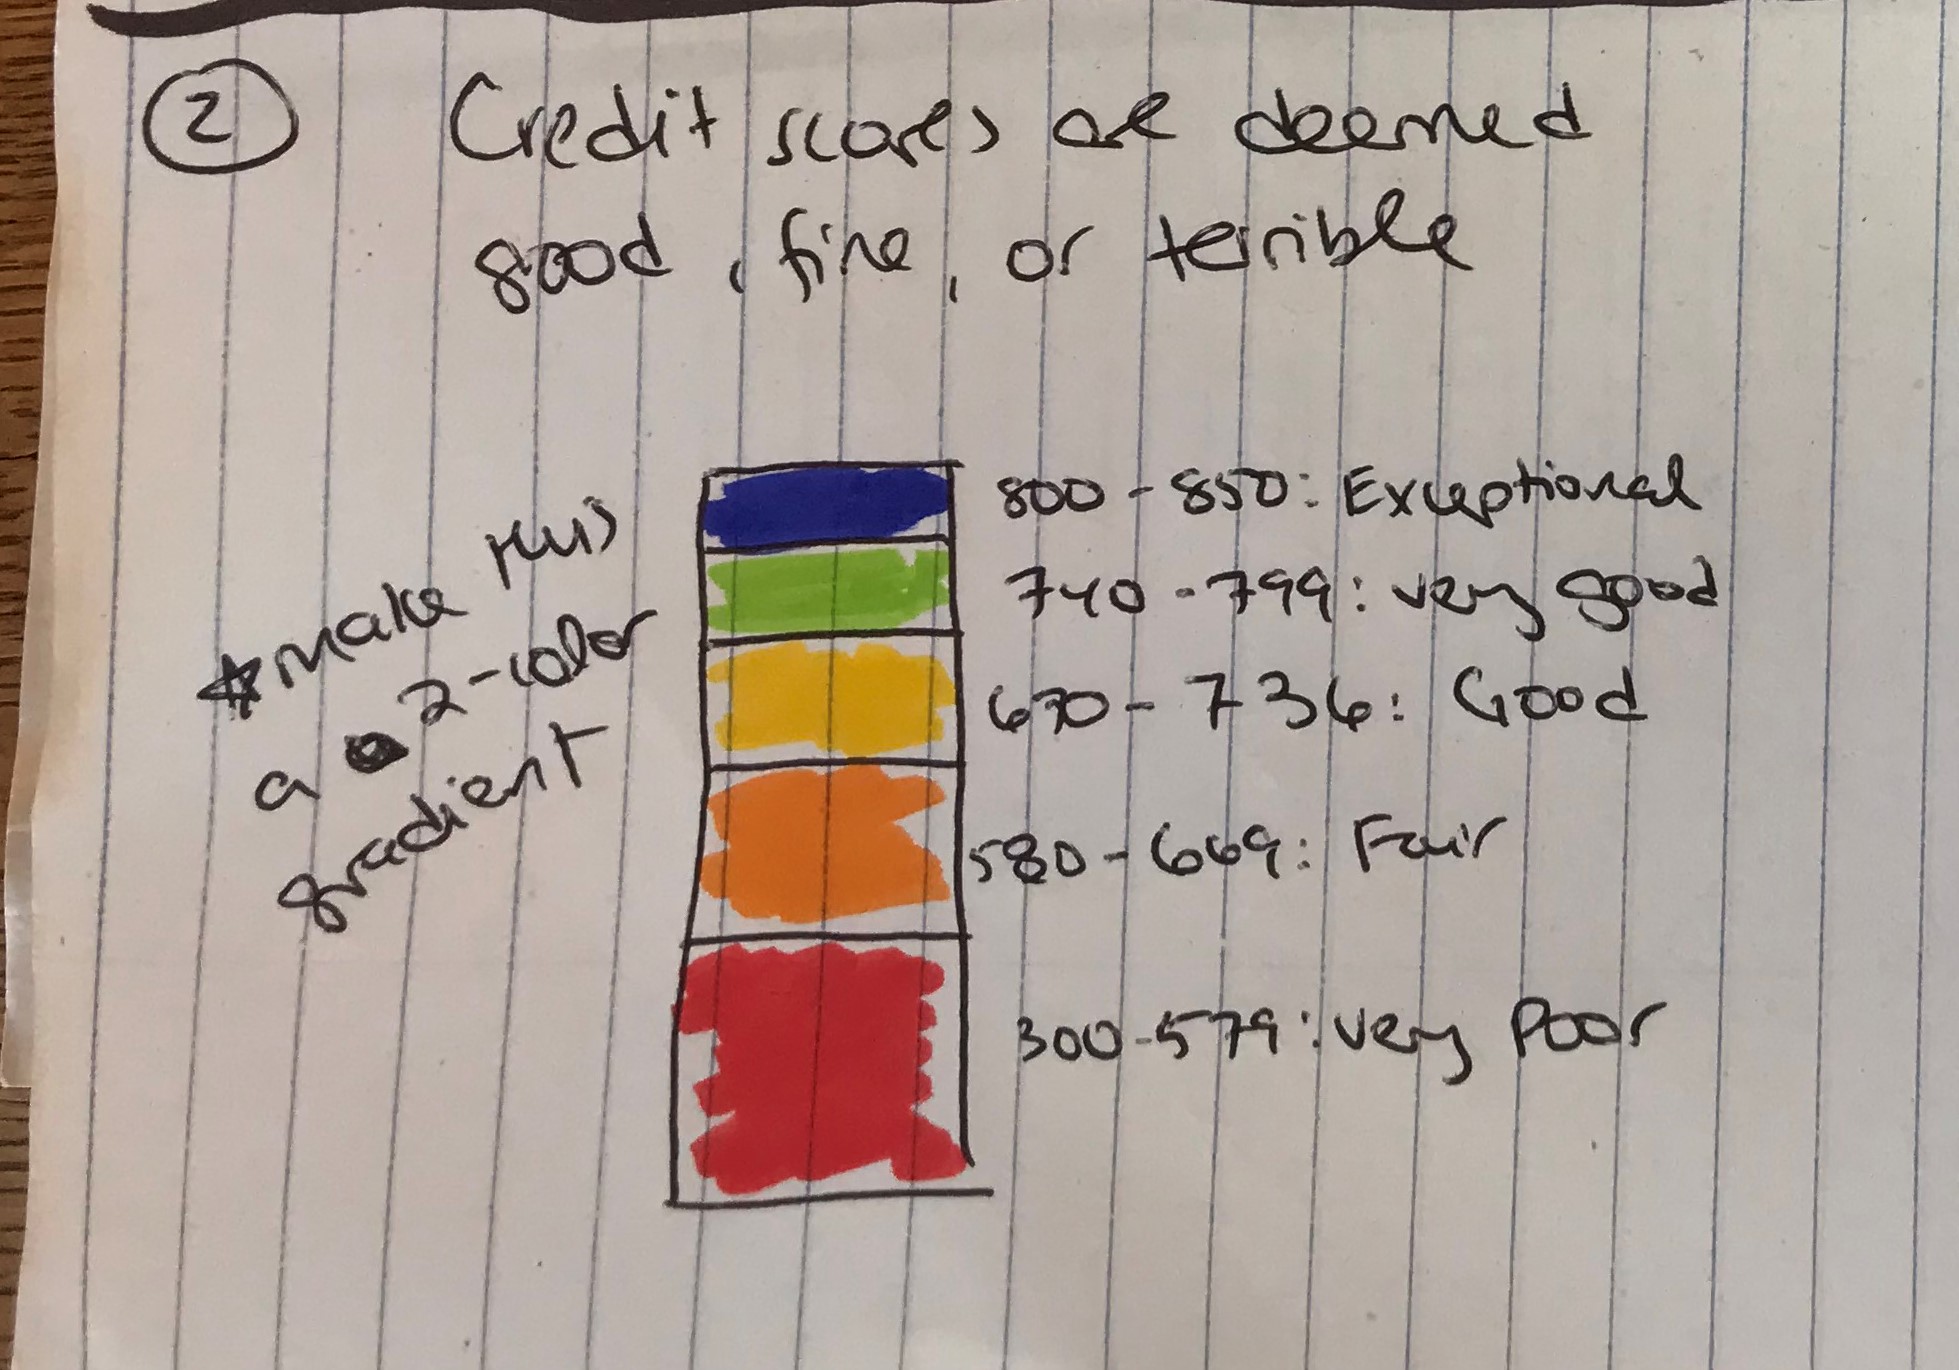 2
Credit scores are deemed
good, fine, or terrible
★ make this
a 2-color
gradient
800 - 850: Exceptional
740 - 799: very good
670 - 736: Good
580 - 669: Fair
300 - 579: very poor